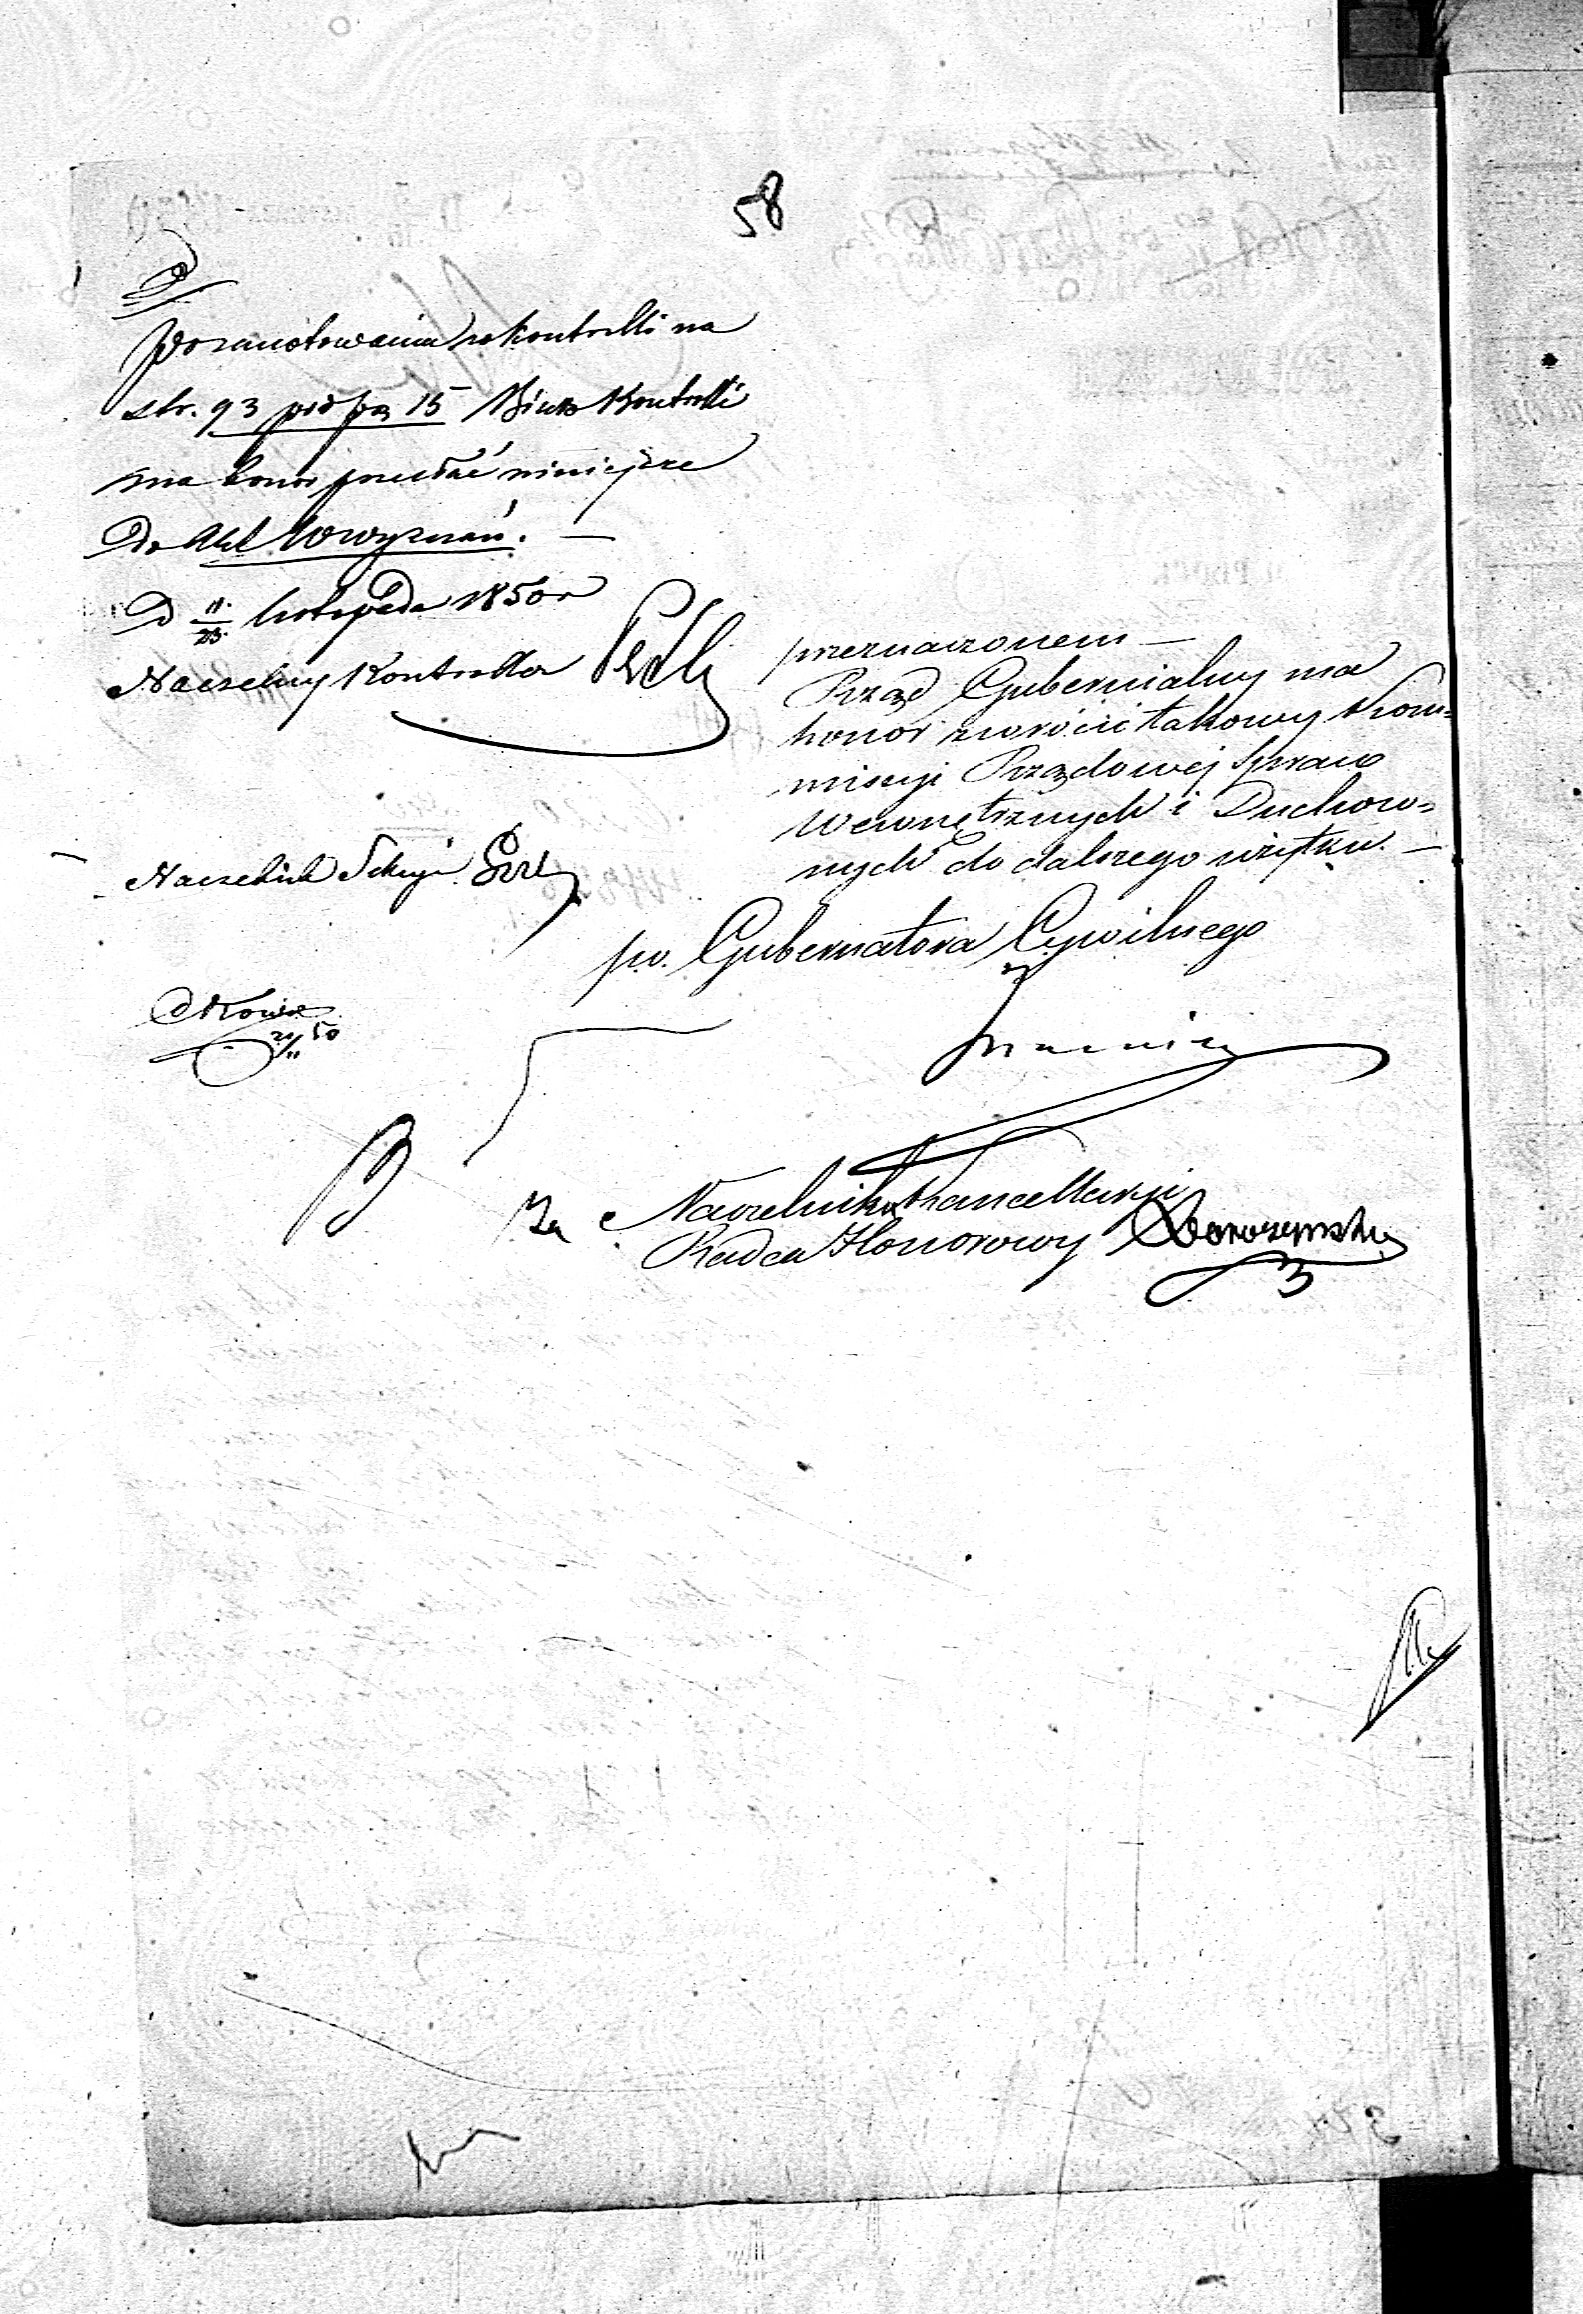 58
Po zanotowaniu w kontrolli na
str. 93 pod poz 15 Biuro Kontrolli
ma honor przesłać niniejsze
Do Akt Wyznań. —
D 11/23 listopada 1850 r
Naczelny Kontroller
przeznaczonem —
Rząd Gubernialny ma
honor zwrócić takowy Kom=
missyi Rządowej Spraw
Wewnętrznych i Duchow=
nych do dalszego użytku. —
Naczelnik Sekcyi
po. Gubernatora Cywilnego
Za Naczelnika Kancellaryi
Radca Honorowy